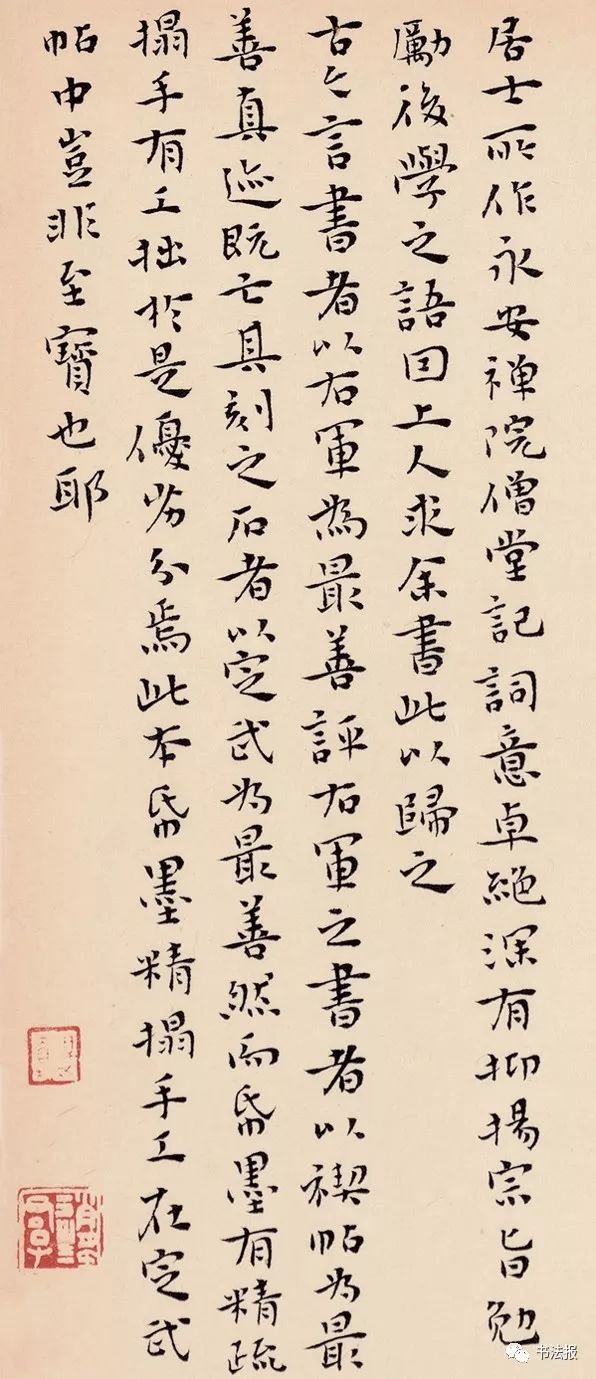 居士所作永安禅院僧堂記詞意卓絶深有抑揚宗旨勉
勵後學之語因上人求余書此以歸之
古今言書者以右軍為最善評右軍之書者以禊帖为最
善真迹既亡其刻之石者以定武为最善然而帋墨有精疏
搨手有工拙於是優劣分焉此本帋墨精搨手工在定武
帖中豈非至寶也耶
书法报